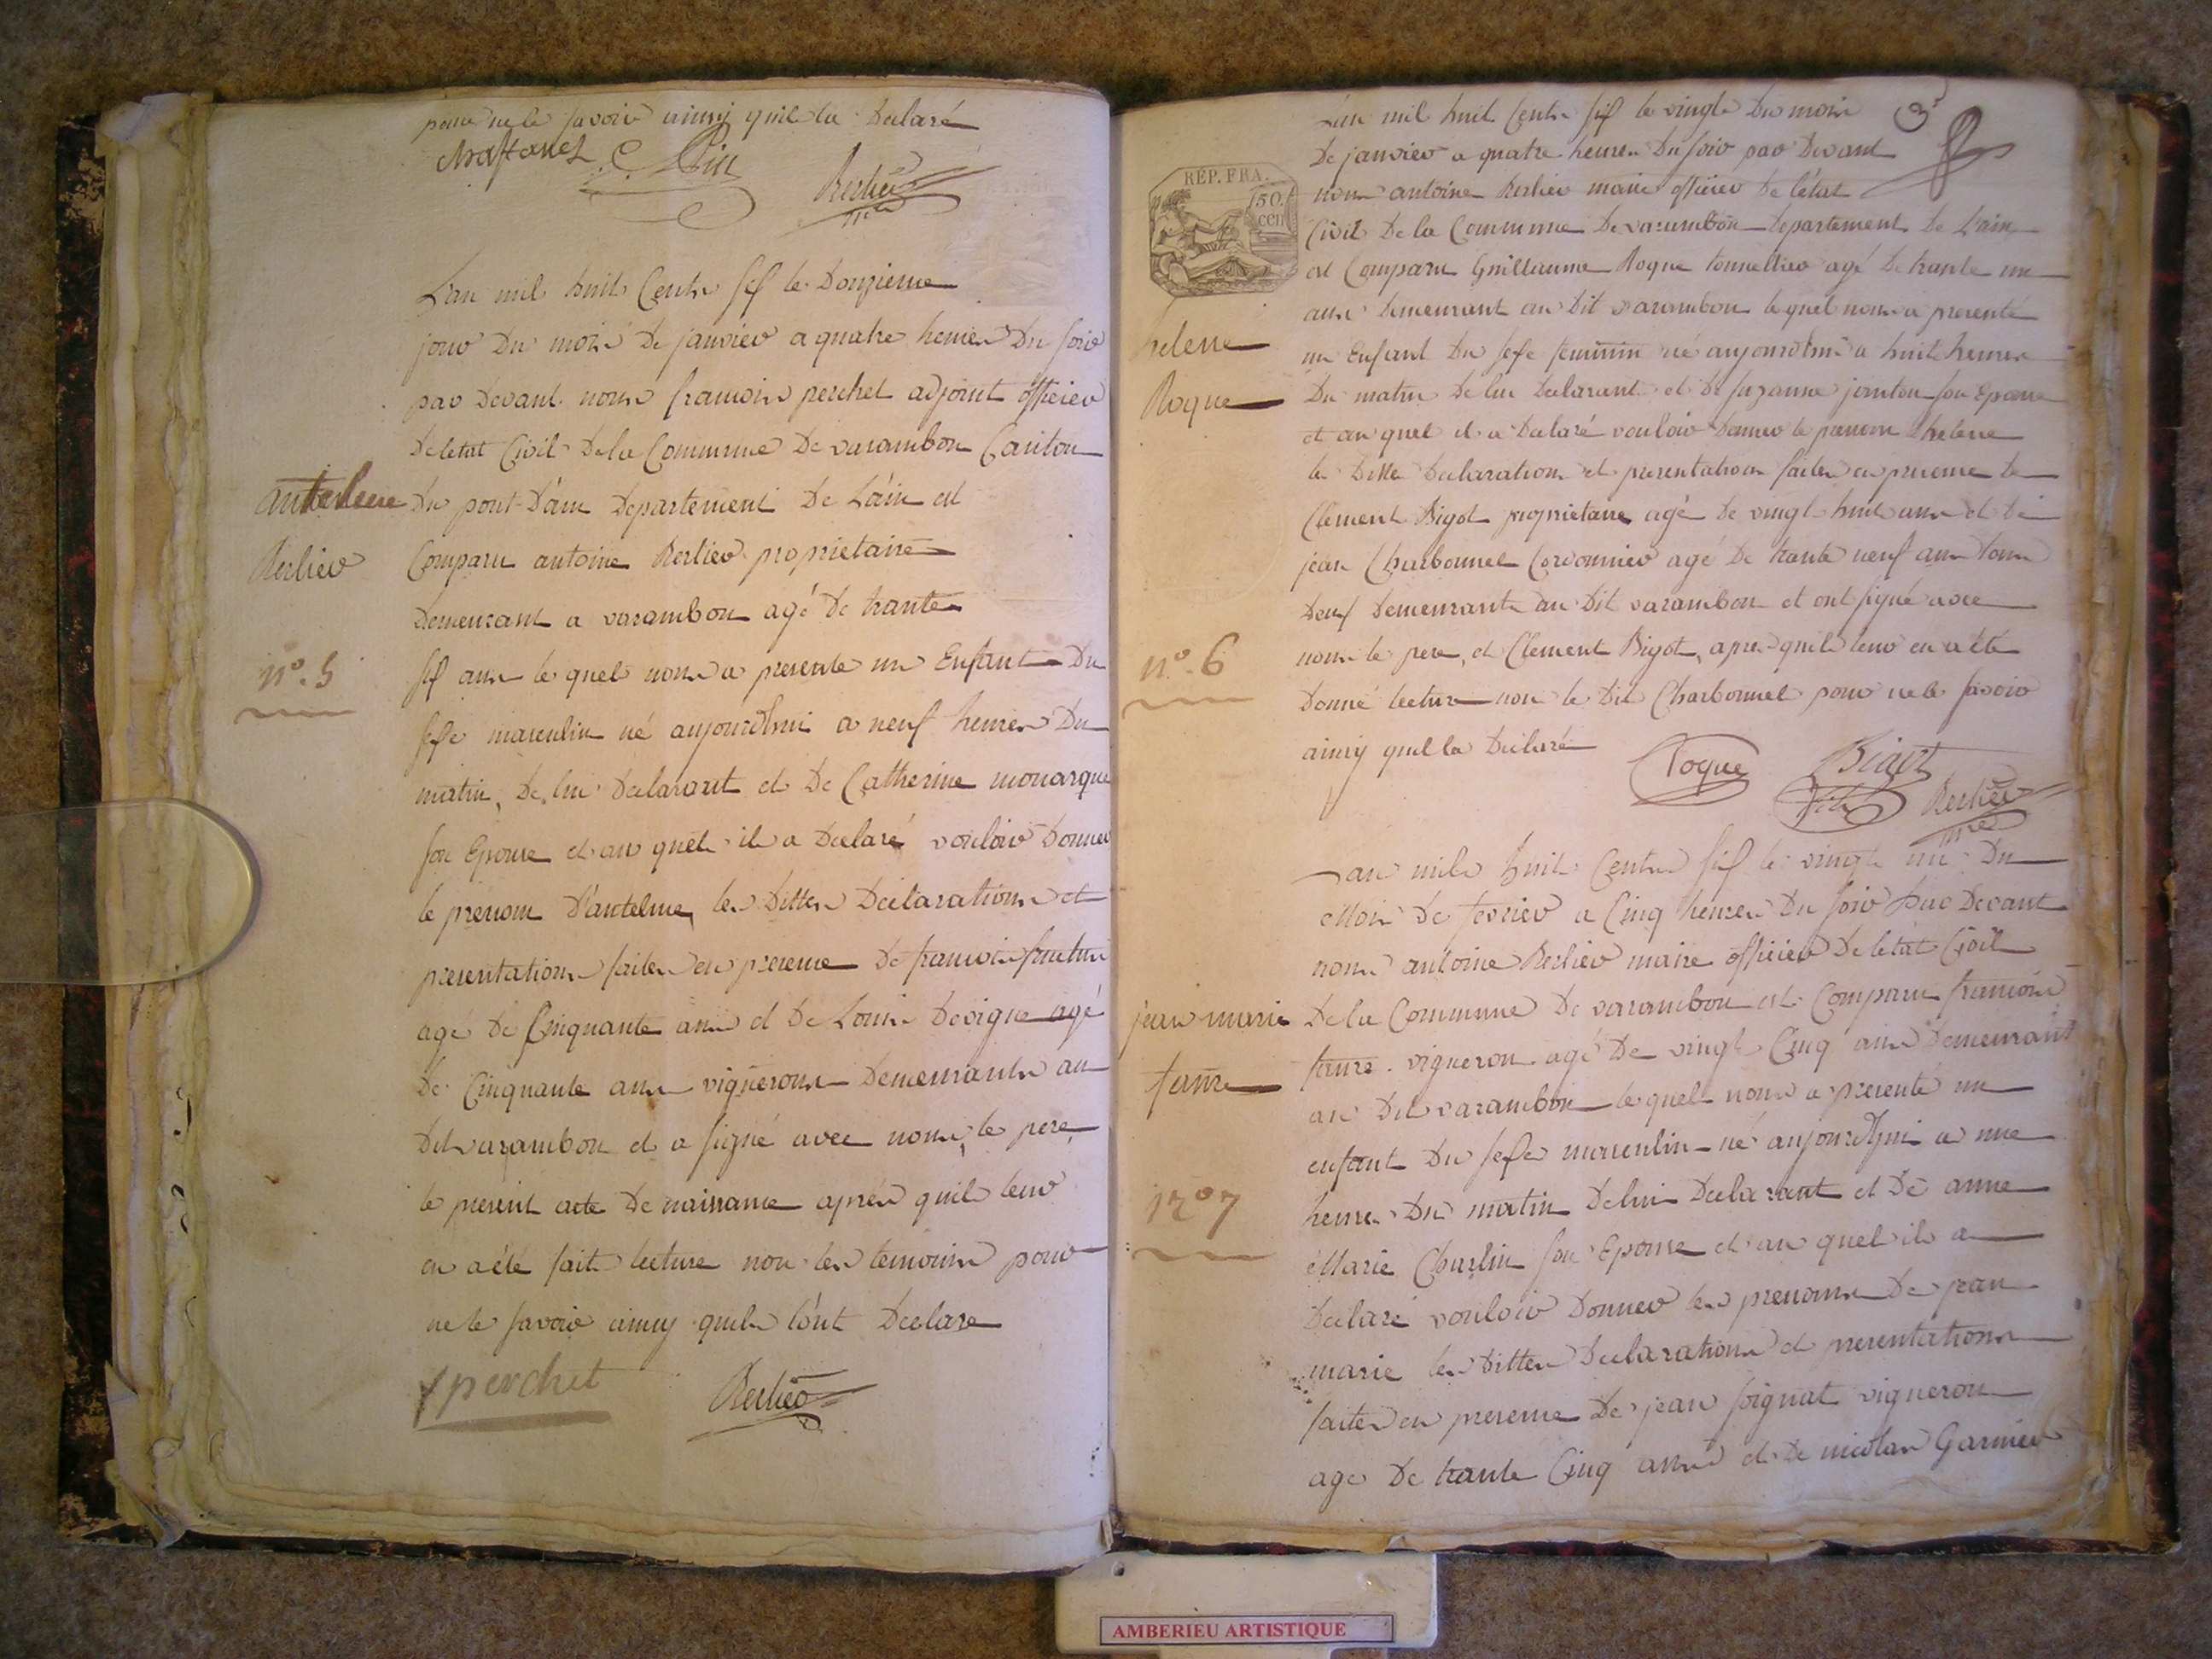 pour ne le savoir ainsy quil la Declaré
Berlier
L'an mil huit Cents six le Douzieme
jour Du mois De janvier a quatre heures Du soir
par Devant nous francois perchet adjoint officier
De letat Civil De la Commune De varambon Canton
Du pont D'ain Departement De L'ain est
Comparu antoine Berlier proprietaire
Demeurant a varambon agé De trante
six ans le quel nous a presente un Enfant Du
sexe masculin né aujourdhui a neuf heures Du
matin, De lui Declarant et De Catherine monarque
son Epouse et au quel il a Declaré vouloir Donner
le prenom D'antelme, les Dittes Déclarations et
presentations faites en presence De francois
agé De Cinquante ans et De Louis Devigne agé
De Cinquante ans vignerons Demeurants au
Dit varambon et a signé avec nous, le pere,
le present acte De naissance après quil leur
en a été fait lecture non les temoins pour
ne le savoir ainsy quils l'ont Declare
perchet
Berlier
anthelme
Berlier
n.º 5
3
REP. FRA.
50
cen
L'an mil huit Cents six le vingt Du mois
De janvier a quatre heures Du soir par Devant
nous antoine Berlier maire officier De l'état
Civil De la Commune De varambon Departement De L'ain
est Comparu Guillaume Roque tonnellier agé De trante un
ans Demeurant au Dit varambon le quel nous a presente
un Enfant Du sexe feminin né aujourdhui a huit heures
Du matin De lui Declarant et De suzanne jointon son Epouse
et au quel il a Declaré vouloir Donner le prenom helene
la Ditte Declaration et presentation faites en presence De
Clement Bigot proprietaire agé De vingt huit ans et De
jean Charbonnel Cordonnier agé De trante neuf ans tous
Deux Demeurants au Dit varambon et ont signé avec
nous le pere, et Clement Bigot, apres quil leur en a été
Donné lecture non le Dit Charbonnel pour ne le savoir
ainsy quil la Déclaré
Roque
Bigot
fils
Berlier
mre
helene
Roque
n.º 6
L'an mil huit Cents six le vingt un Du
Mois De fevrier a Cinq heures Du soir par Devant
nous antoine Berlier maire officier De letat Civil
De la Commune De varambon est Comparu francois
faure vigneron agé De vingt Cinq ans Demeurant
au Dit varambon le quel nous a presenté un
enfant Du sexe masculin né aujourdhui a une
heure Du matin De lui Declarant et De anne
Marie Charlin son Epouse et au quel il a
Declaré vouloir Donner les prenoms De jean
marie les Dittes Declarations et presentations
faites en presence De jean soignat vigneron
age De trante Cinq ans et De nicolas Garnier
jean marie
faure
nº 7
AMBERIEU ARTISTIQUE